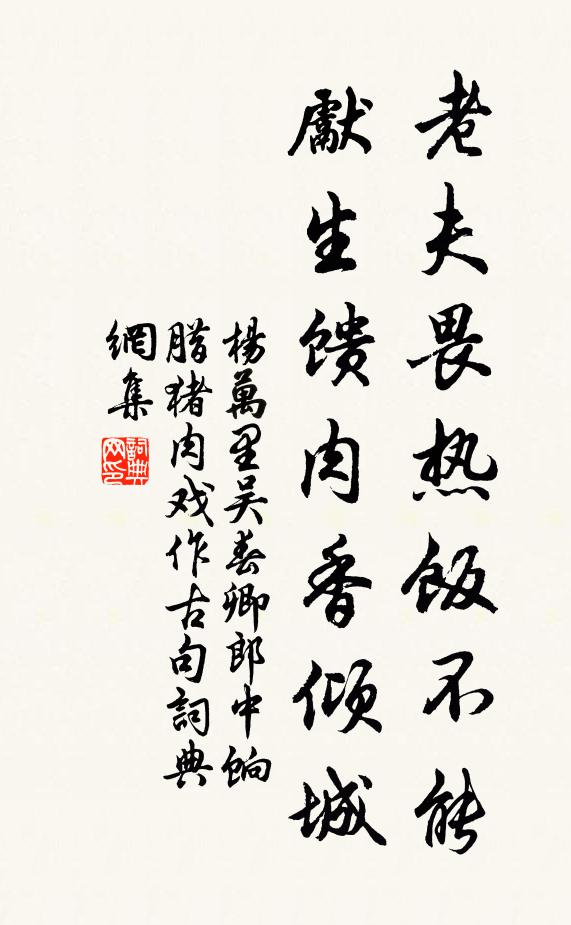 老夫畏热饭不能
獻生馈肉香倾城
楊萬里吴春卿郎中饷
腊猪肉戏作古句詞典
網集
詞典
网印